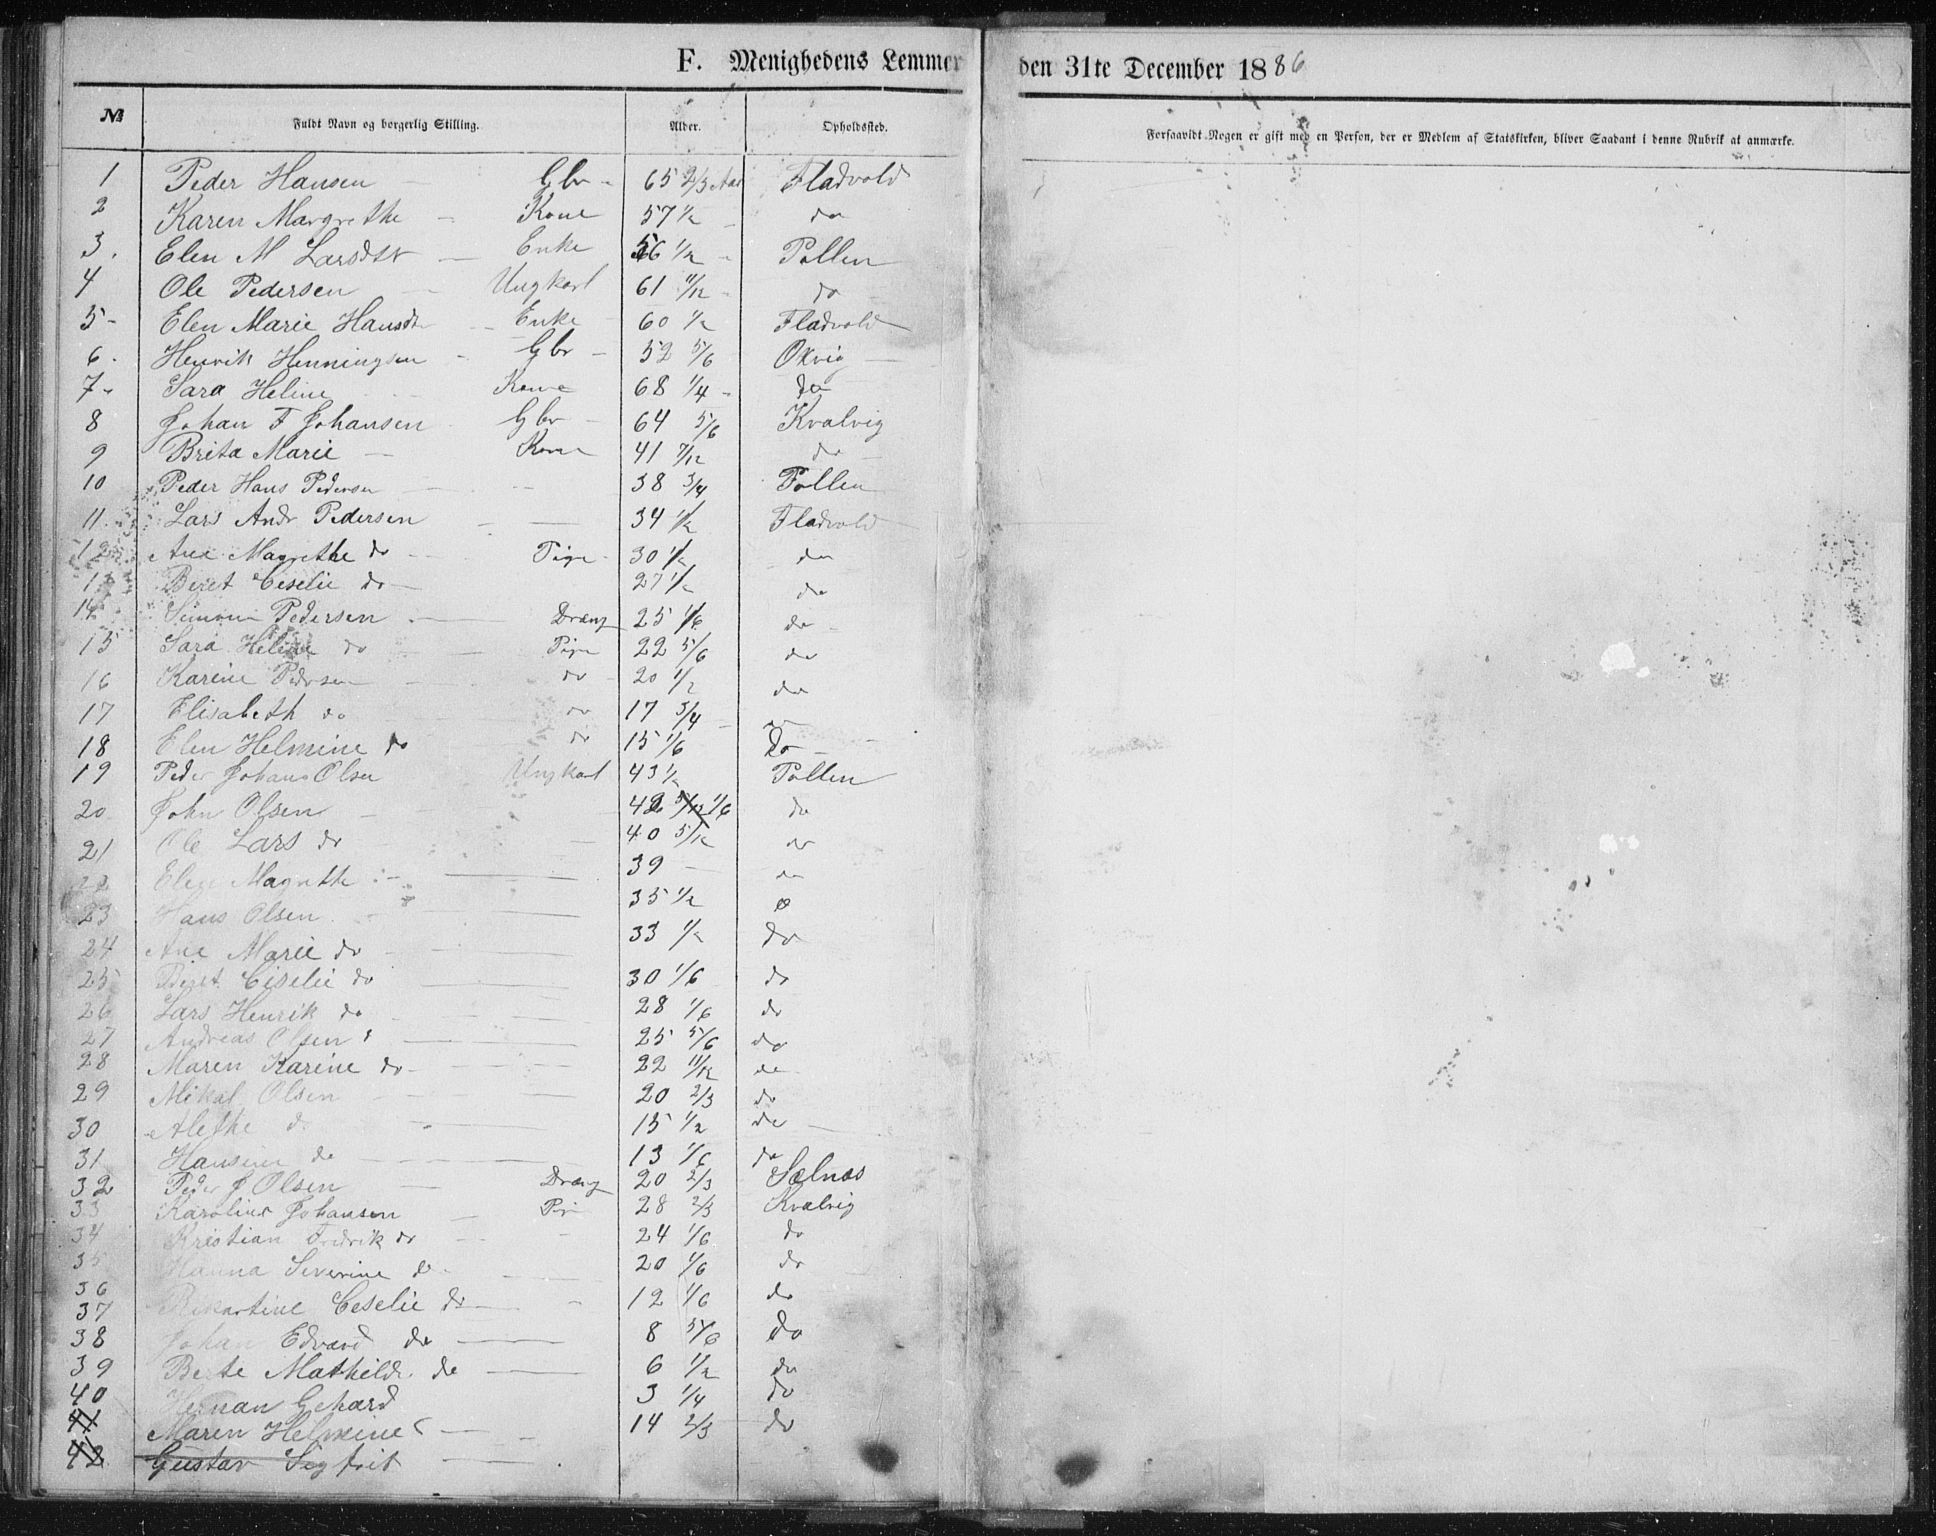 F. Menighedens Lemmer den 31te December 1886
№ Fuldt Navn og borgerlig Stilling. Alder. Opholdssted. Forsaavidt Nogen er gift med en Person, der er Medlem af Statskirken, bliver Saadant i denne Rubrik at anmærke.
1 Peder Hansen — Gbr - 65 2/3 Aar Fladvold
2 Karen Margrethe — Kone 57 1/2 do
3. Elen M Larsdtr — Enke 56 1/2 - Pollen
4 Ole Pedersen — Ungkarl 61 11/12 - do
5- Elen Marie Hansdtr — Enke 60 1/2 Fladvold
6. Henrik Henningsen - Gbr - 52 5/6 Okvig —
7- Sara Heline Kone 68 1/4 - do
8 Johan F Johansen Gbr - 64 5/6 Kvalvig
9 Brita Marie — Kone 41 7/12 do
10 Peder Hans Pedersen — 38 3/4 Pollen
11. Lars Andr Pedersen — 34 1/2 Fladvold
12 Ane Magrethe do — Pige - 30 1/2 do
13 Beret Ceselie do — 27 1/2 do
14 Simon Pedersen — Dreng 25 1/6 do
15 Sara Heline do — Pige 22 5/6 do
16 Karine Pedersen — do 20 1/2 do
17 Elisabeth do do 17 3/4 do
18 Elen Helmine do do 15 1/6 do
19 Peder Johans Olsen Ungkarl 43 1/2 Pollen
20 John Olsen — 42 1/6 do
21 Ole Lars do — 40 5/12 do
22 Elen Magrethe — 39 — do
23 Hans Olsen — 35 1/2 do
24 Ane Marie do — 33 1/2 do
25 Beret Ciselie do — 30 1/6 do
26 Lars Henrik do — 28 1/6 do
27 Andreas Olsen — 25 5/6 do
28 Maren Karine do — 22 11/12 do
29 Mikal Olsen — 20 2/3 do
30 Alethe do — 15 1/2 do
31 Hansine do — 13 1/6 do
32 Peder J Olsen — Dreng 20 2/3 Sælnæs
33 Karoline Johansen — Pi 28 2/3 Kvalvig
34 Kristian Fredrik do — 24 1/6 do
35 Hanna Severine do — 20 1/6 do
36
37 Rikartine Ceselie do — 12 1/6 do
38 Johan Edvard do — 8 5/6 do
39 Berte Mathilde do — 6 1/2 do
40 Herman Gehard 3 1/4 do
41 Maren Helmine — 14 2/3 do
42 Gustav Sigfrit —